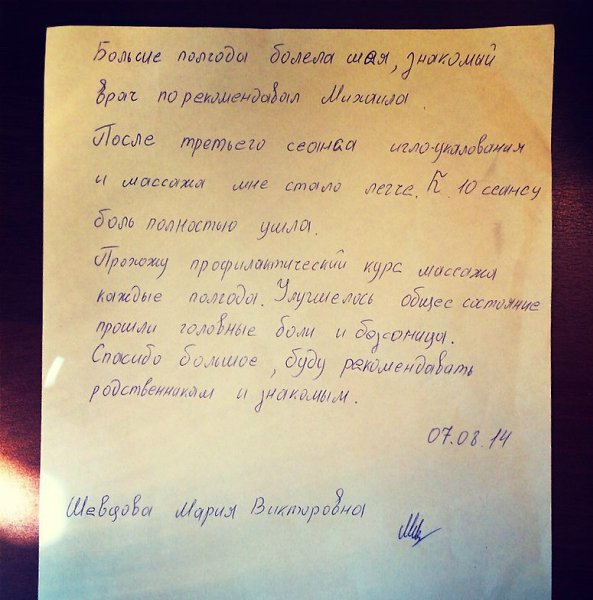 Больше полгода болела шея, знакомый
врач порекомендавал Михаила
После третьего сеанса игло-укалования
и массажа мне стало легче. К 10 сеансу
боль полностью ушла.
Прохожу профилактический курс массажа
каждые полгода. Улучшелось общее состояние
прошли головные боли и безсоница.
Спасибо большое, буду рекомендавать
родственникам и знакомым.
07.08.14
Шевцова Мария Викторовна